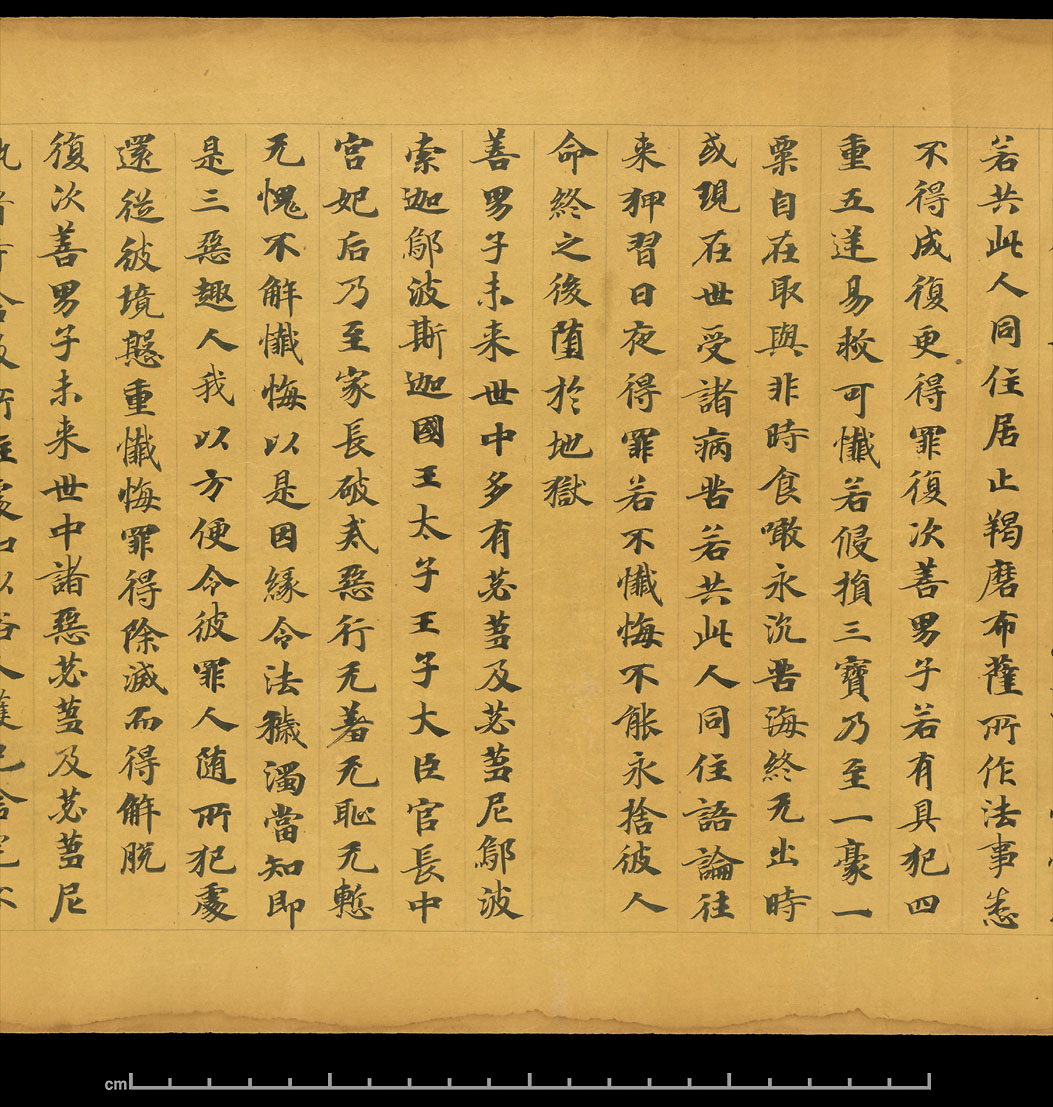 若共此人同住居止羯磨布薩所作法事悉
不得成復更得罪復次善男子若有具犯四
重五逆易救可懺若侵損三寶乃至一豪一
粟自在取與非時食噉永沉苦海終无出時
或現在世受諸病苦若共此人同住語論往
来狎習日夜得罪若不懺悔不能永捨彼人
命終之後墮於地獄
善男子未来世中多有苾蒭及苾蒭尼鄔波
索迦鄔波斯迦國王太子王子大臣官長中
宮妃后乃至家長破式惡行无羞无恥无慙
无愧不解懺悔以是因緣令法穢濁當知即
是三惡趣人我以方便令彼罪人随所犯處
還從彼境慇重懺悔罪得除滅而得解脫
復次善男子未来世中諸惡苾蒭及苾蒭尼